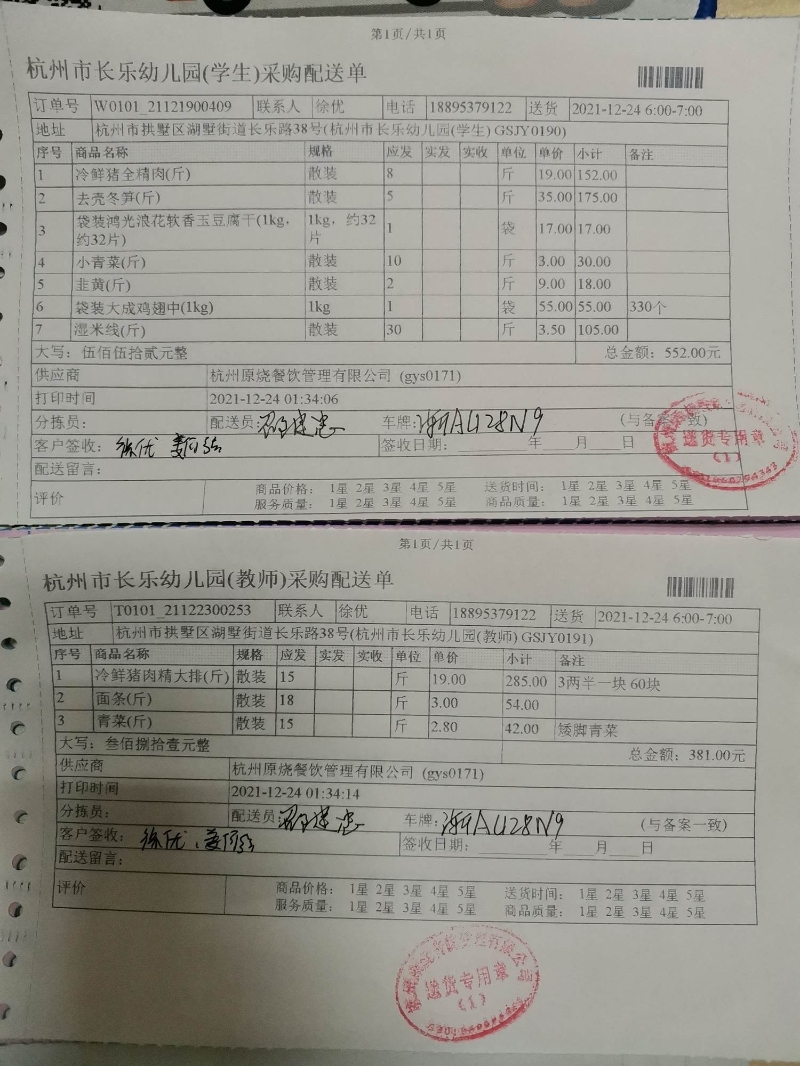 第1页/共1页
杭州市长乐幼儿园(学生)采购配送单
订单号 W0101_21121900409 联系人 徐优 电话 18895379122 送货 2021-12-24 6:00-7:00
地址 杭州市拱墅区湖墅街道长乐路38号(杭州市长乐幼儿园(学生) GSJY0190)
序号 商品名称 规格 应发 实发 实收 单位 单价 小计 备注
1 冷鲜猪全精肉(斤) 散装 8 斤 19.00 152.00
2 去壳冬笋(斤) 散装 5 斤 35.00 175.00
3 袋装鸿光浪花软香玉豆腐干(1kg,约32片) 1kg，约32片 1 袋 17.00 17.00
4 小青菜(斤) 散装 10 斤 3.00 30.00
5 韭黄(斤) 散装 2 斤 9.00 18.00
6 袋装大成鸡翅中(1kg) 1kg 1 袋 55.00 55.00 330个
7 湿米线(斤) 散装 30 斤 3.50 105.00
大写：伍佰伍拾贰元整 总金额：552.00元
供应商 杭州原烧餐饮管理有限公司 (gys0171)
打印时间 2021-12-24 01:34:06
分拣员： 配送员： 车牌：浙AU28N9 (与备案一致)
客户签收：徐优 签收日期： 年 月 日
配送留言：
评价 商品价格： 1星 2星 3星 4星 5星 送货时间： 1星 2星 3星 4星 5星
服务质量： 1星 2星 3星 4星 5星 商品质量： 1星 2星 3星 4星 5星
送货专用章
(1)
第1页/共1页
杭州市长乐幼儿园(教师)采购配送单
订单号 T0101_21122300253 联系人 徐优 电话 18895379122 送货 2021-12-24 6:00-7:00
地址 杭州市拱墅区湖墅街道长乐路38号(杭州市长乐幼儿园(教师) GSJY0191)
序号 商品名称 规格 应发 实发 实收 单位 单价 小计 备注
1 冷鲜猪肉精大排(斤) 散装 15 斤 19.00 285.00 3两半一块 60块
2 面条(斤) 散装 18 斤 3.00 54.00
3 青菜(斤) 散装 15 斤 2.80 42.00 矮脚青菜
大写：叁佰捌拾壹元整 总金额：381.00元
供应商 杭州原烧餐饮管理有限公司 (gys0171)
打印时间 2021-12-24 01:34:14
分拣员： 配送员： 车牌：浙AU28N9 (与备案一致)
客户签收：徐优、 签收日期： 年 月 日
配送留言：
评价 商品价格： 1星 2星 3星 4星 5星 送货时间： 1星 2星 3星 4星 5星
服务质量： 1星 2星 3星 4星 5星 商品质量： 1星 2星 3星 4星 5星
送货专用章
(1)